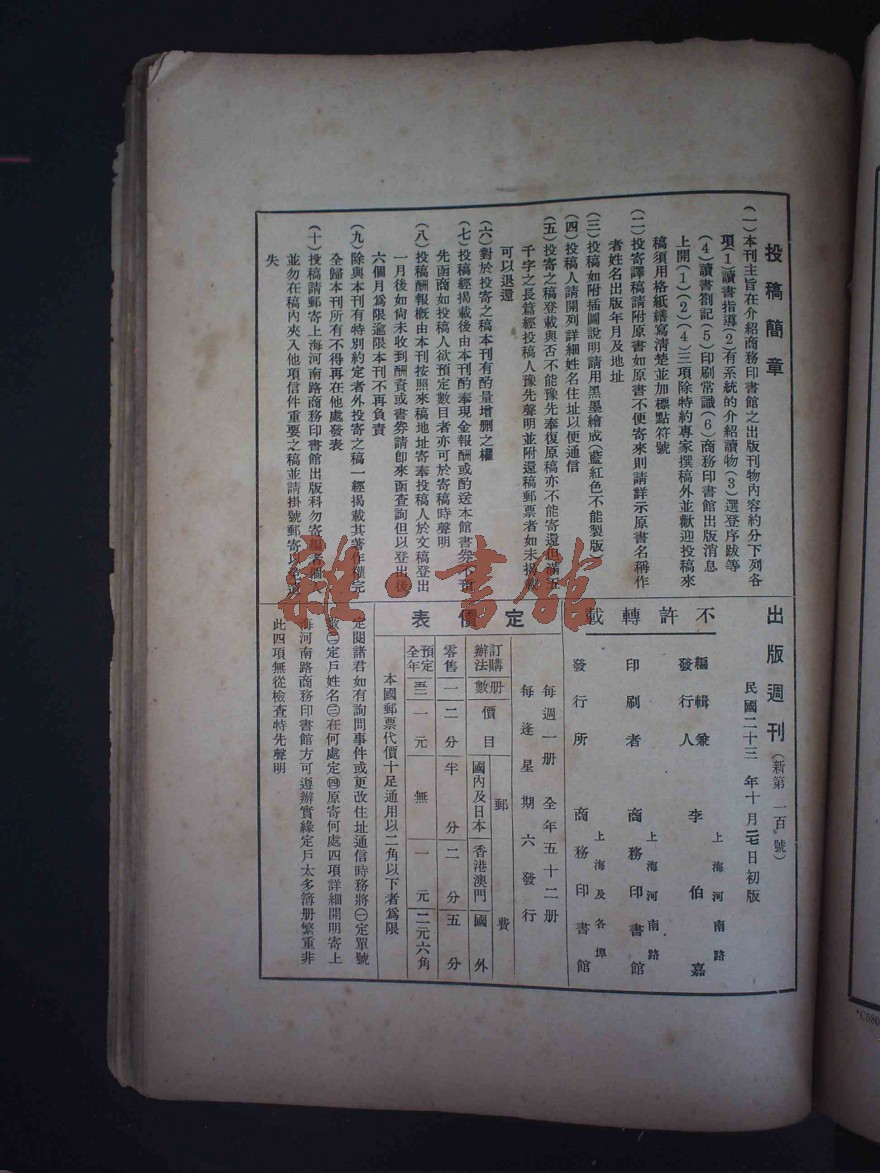 投稿簡章
(一)本刊主旨在介紹商務印書館之出版刊物內容約分下列各
項(1)讀書指導(2)有系統的介紹讀物(3)選登序跋等
(4)讀書劄記(5)印刷常識(6)商務印書館出版消息
上開(1)(2)(4)三項除特約專家撰稿外並歡迎投稿來
稿須用格紙繕寫清楚並加標點符號
(二)投寄譯稿請附原書如原書不便寄來則請詳示原書名稱作
者姓名出版年月及地址
(三)投稿如附插圖說明請用黑墨繪成(藍紅色不能製版)
(四)投稿人請開列詳細姓名住址以便通信
(五)投寄之稿登載與否不能豫先奉復原稿亦不能寄還但滿五
千字之長篇經投稿人豫先聲明並附還稿郵票者如未揭載
可以退還
(六)對於投寄之稿本刊有酌量增刪之權
(七)投稿經揭載後由本刊酌奉現金報酬或酌送本館書券本刊
先函商如投稿人欲預定數目者亦可於寄稿時聲明
(八)投稿酬報概由本刊按照來稿地址寄奉投稿人於文稿登出
一月後如尙未收到酬資或書券請卽來函查詢但以登出後
六個月爲限逾限本刊不再負責
(九)除與本刊有特別約定者外投寄之稿一經揭載其著作權完
全歸本刊所有不得再在他處發表
(十)投稿請郵寄上海河南路商務印書館出版科勿寄編者個人
並勿在稿內夾入他項信件重要之稿並請掛號郵寄以免遺
失
出版週刊(新第一百號)
民國二十三年十月二七日初版
不許轉載
編輯兼發行人 李伯嘉
上海河南路
印刷者 商務印書館
上海河南路
發行所 商務印書館
上海及各埠
定價表
每週一册 全年五十二册
每逢星期六發行
訂購辦法 册數 價目 郵費
國內及日本 香港澳門 國外
零售 一 二分 半分 二分 五分
預定全年 五二 一元 無 一元 二元六角
本國郵票代價十足通用以二角以下者爲限
定閱諸君如有詢問事件或更改住址通信時務將㊀定單號
數㊁定戶姓名㊂在何處定㊃原寄何處四項詳細開明寄上
海河南路商務印書館方可遵辦實緣定戶太多簿册繁重非
此四項無從檢查特先聲明
雜·書館